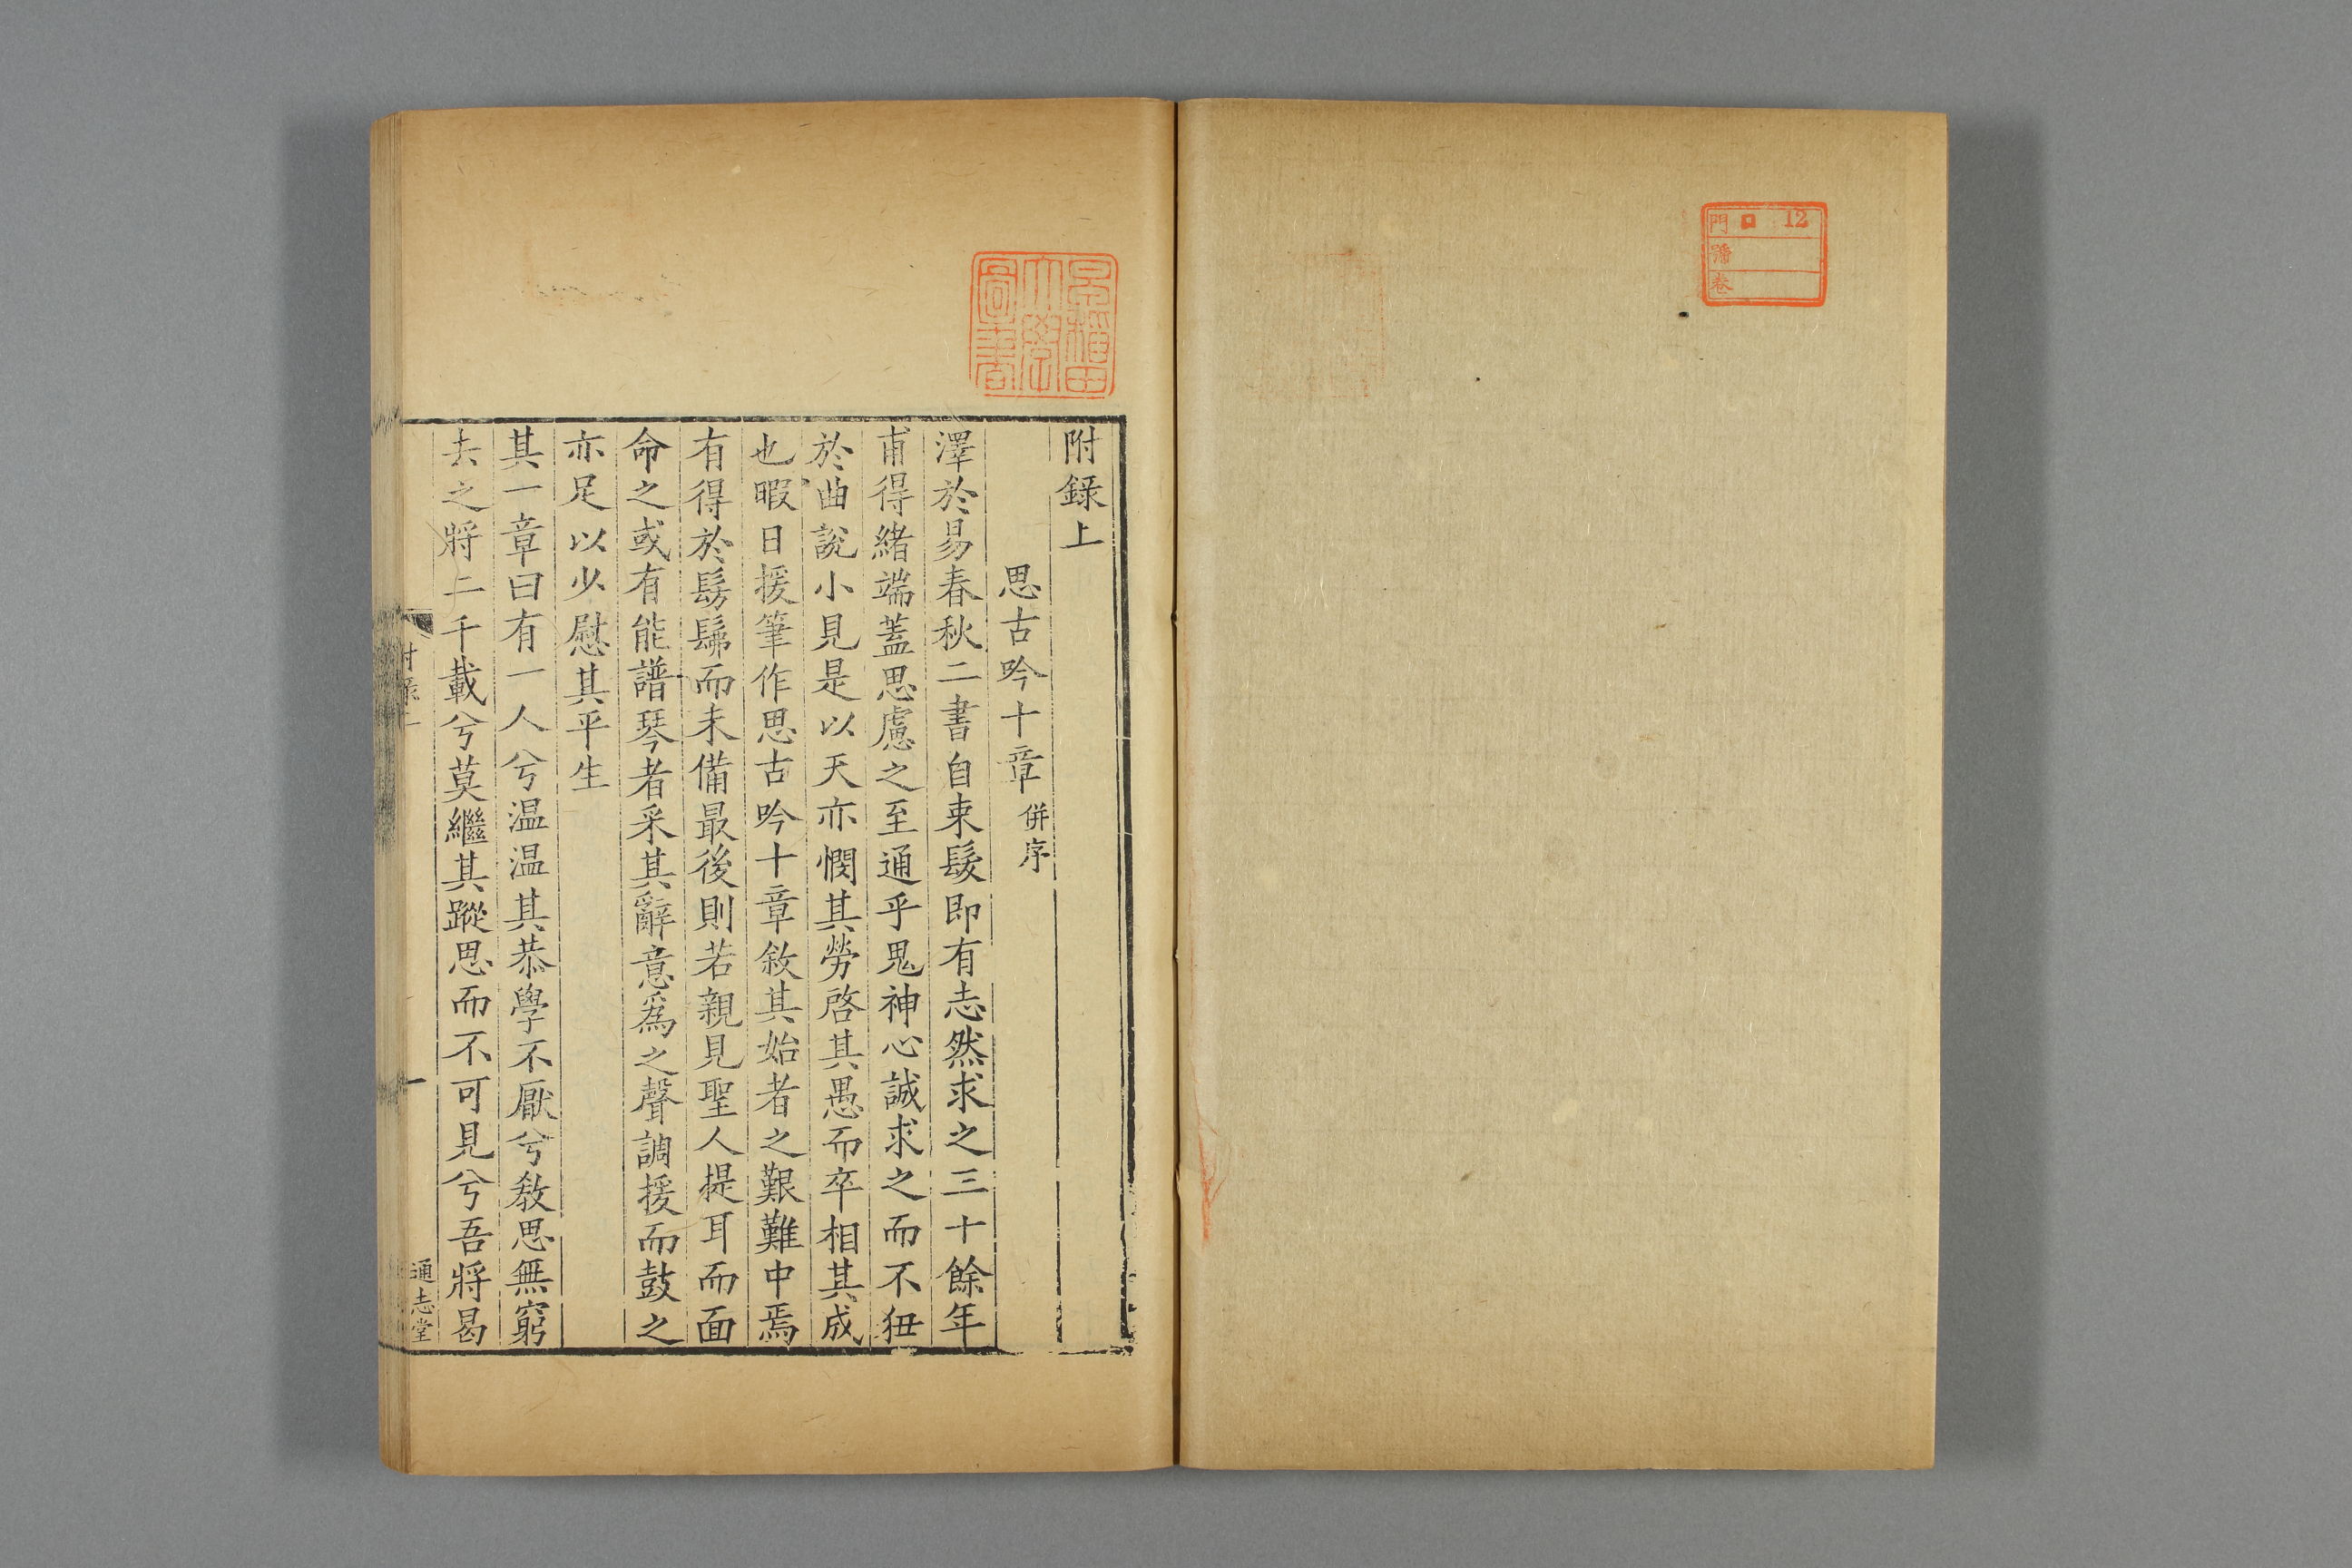 門 口 12
號
卷
早稲田
大學
圖書
附録上
思古吟十章 併序
澤於易春秋二書自束髮即有志然求之三十餘年
甫得緒端蓋思慮之至通乎鬼神心誠求之而不狃
於曲說小見是以天亦憫其勞啓其愚而卒相其成
也暇日援筆作思古吟十章敘其始者之艱難中焉
有得於髣髴而未備最後則若親見聖人提耳而面
命之或有能譜琴者采其辭意爲之聲調援而鼓之
亦足以少慰其平生
其一章曰有一人兮温温其恭學不厭兮教思無窮
去之將二千載兮莫繼其蹤思而不可見兮吾將曷
一
通志堂